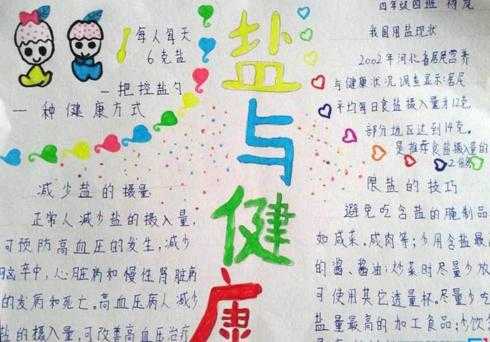 每人每天
6克盐
一把控盐勺
一种健康方式
减少盐的摄量
正常人减少盐的摄入量,
可预防高血压的发生,减少
卒中,心脏病和慢性肾脏病
的发病和死亡。高血压病人减少
盐的摄入量,可改善高血压治疗
盐与健康
四年级四班
我国用盐现状
2002年河北省居民营养
与健康状况调查显示:居民
平均每日食盐摄入量为12克,
部分地区达到14克。
是推荐食盐摄入量的
2倍
限盐的技巧
避免吃含盐的腌制品
如咸菜,咸肉等;少用含盐最
的酱、酱油;炒菜时尽量少放
可使用其它适量杯。尽量少吃
盐量最高的加工食品;少饮